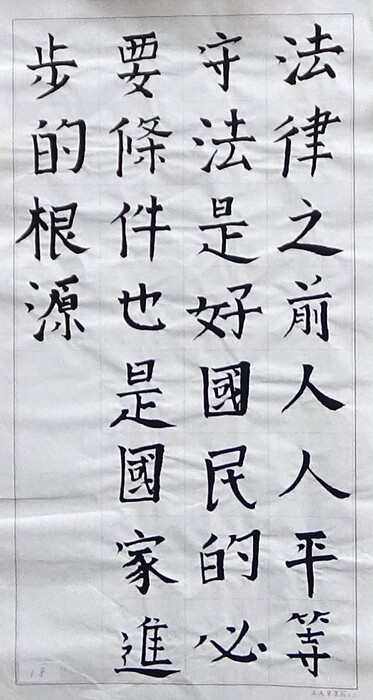 法律之前人人平等
守法是好國民的必
要條件也是國家進
步的根源
18